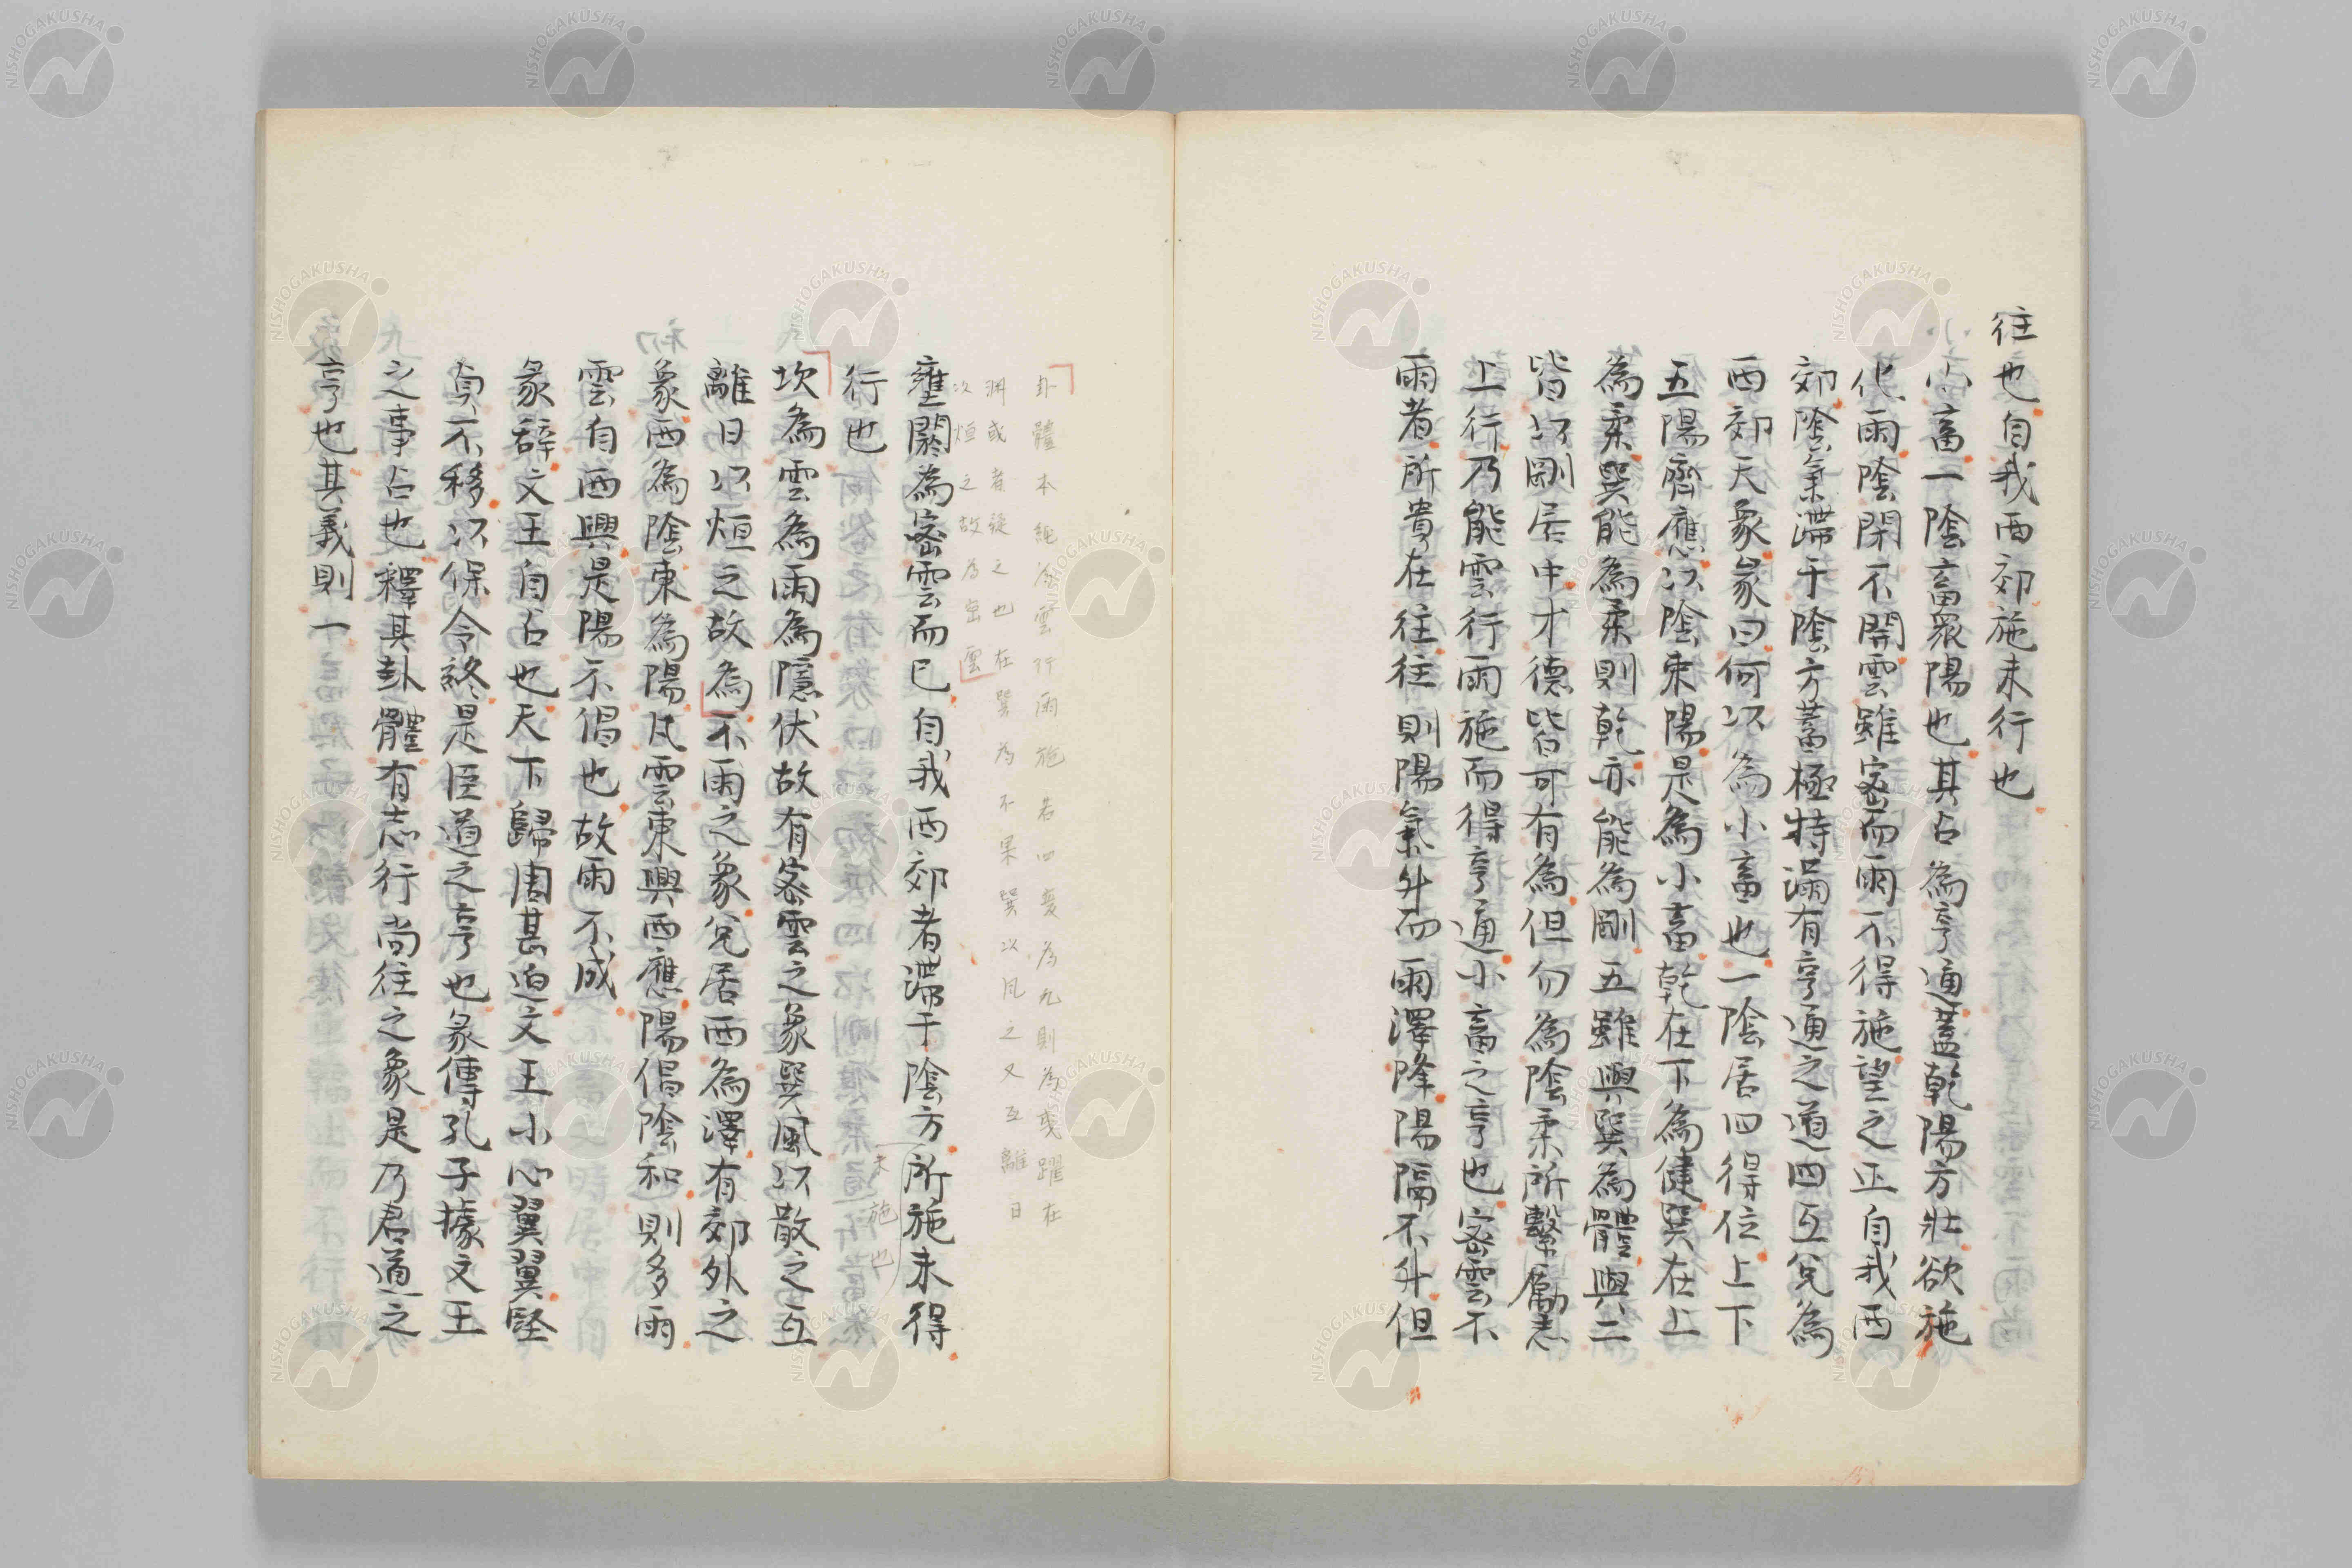 往也自我西郊施未行也
小畜一陰畜衆陽也其占為亨通蓋乾陽方壯欲施
化雨陰閉不開雲雖密而雨不得施望之正自我西
郊陰氣滯于陰方蓄極持滿有亨通之道四互兌為
西郊天象彖曰何以為小畜也一陰居四得位上下
五陽齊應以陰束陽是為小畜乾在下為健巽在上
為柔巽能為柔則乾亦能為剛五雖與巽為體與二
皆以剛居中才德皆可有為但勿為陰柔所繫勵志
上行乃能雲行雨施而得亨通小畜之亨也密雲不
雨者所貴在往往則陽氣升而雨澤降陽隔不升但
卦體本純陰雲行雨施若四變為九則為或躍在
淵或者疑之也在巽為不果巽以風之又互離日
以烜之故為密雲
壅閼為密雲而已自我西郊者滯于陰方所施未得
未施也
行也
坎為雲為雨為隱伏故有密雲之象巽風以散之互
離日以烜之故為不雨之象兌居西為澤有郊外之
象西為陰東為陽凡雲東興西應陽倡陰和則多雨
雲自西興是陽不倡也故雨不成
彖辭文王自占也天下歸周甚迫文王小心翼翼堅
貞不移以保令終是臣道之亨也彖傳孔子據文王
之事占也釋其卦體有志行尚往之象是乃君道之
亨也其義則一